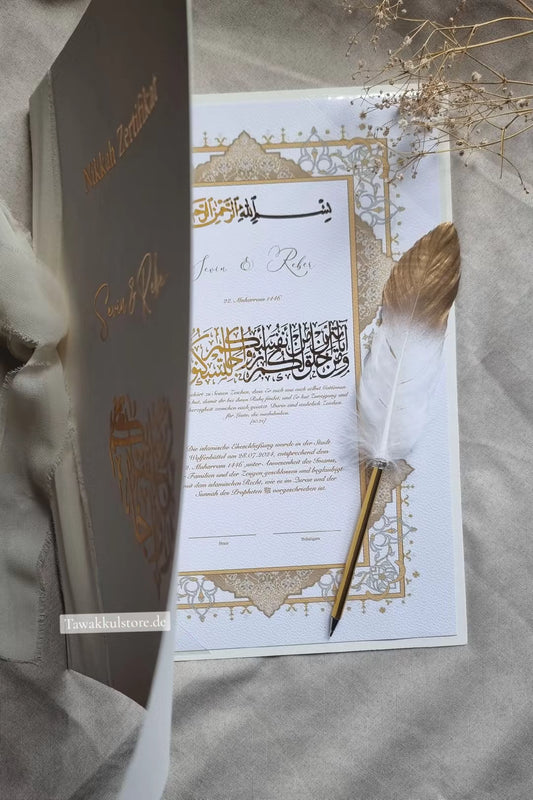 Nikkah Zertifikat
Sevin & Reber
Tawakkulstore.de
بسم الله الرحمن الرحيم
Sevin & Reber
22. Muharram 1446
ومن آياته أن خلق لكم من أنفسكم أزواجا لتسكنوا
gehört zu Seinen Zeichen, dass Er euch aus euch selbst Gattinnen
hat, damit ihr bei ihnen Ruhe findet; und Er hat Zuneigung und
Barmherzigkeit zwischen euch gesetzt. Darin sind wahrlich Zeichen
für Leute, die nachdenken.
[30:21]
Die islamische Eheschließung wurde in der Stadt
Wolfenbüttel am 28.07.2024, entsprechend dem
Muharram 1446 unter Anwesenheit des Imams,
Familien und der Zeugen geschlossen und beglaubigt
mit dem islamischen Recht, wie es im Quran und der
Sunnah des Propheten ﷺ vorgeschrieben ist.
Braut
Bräutigam